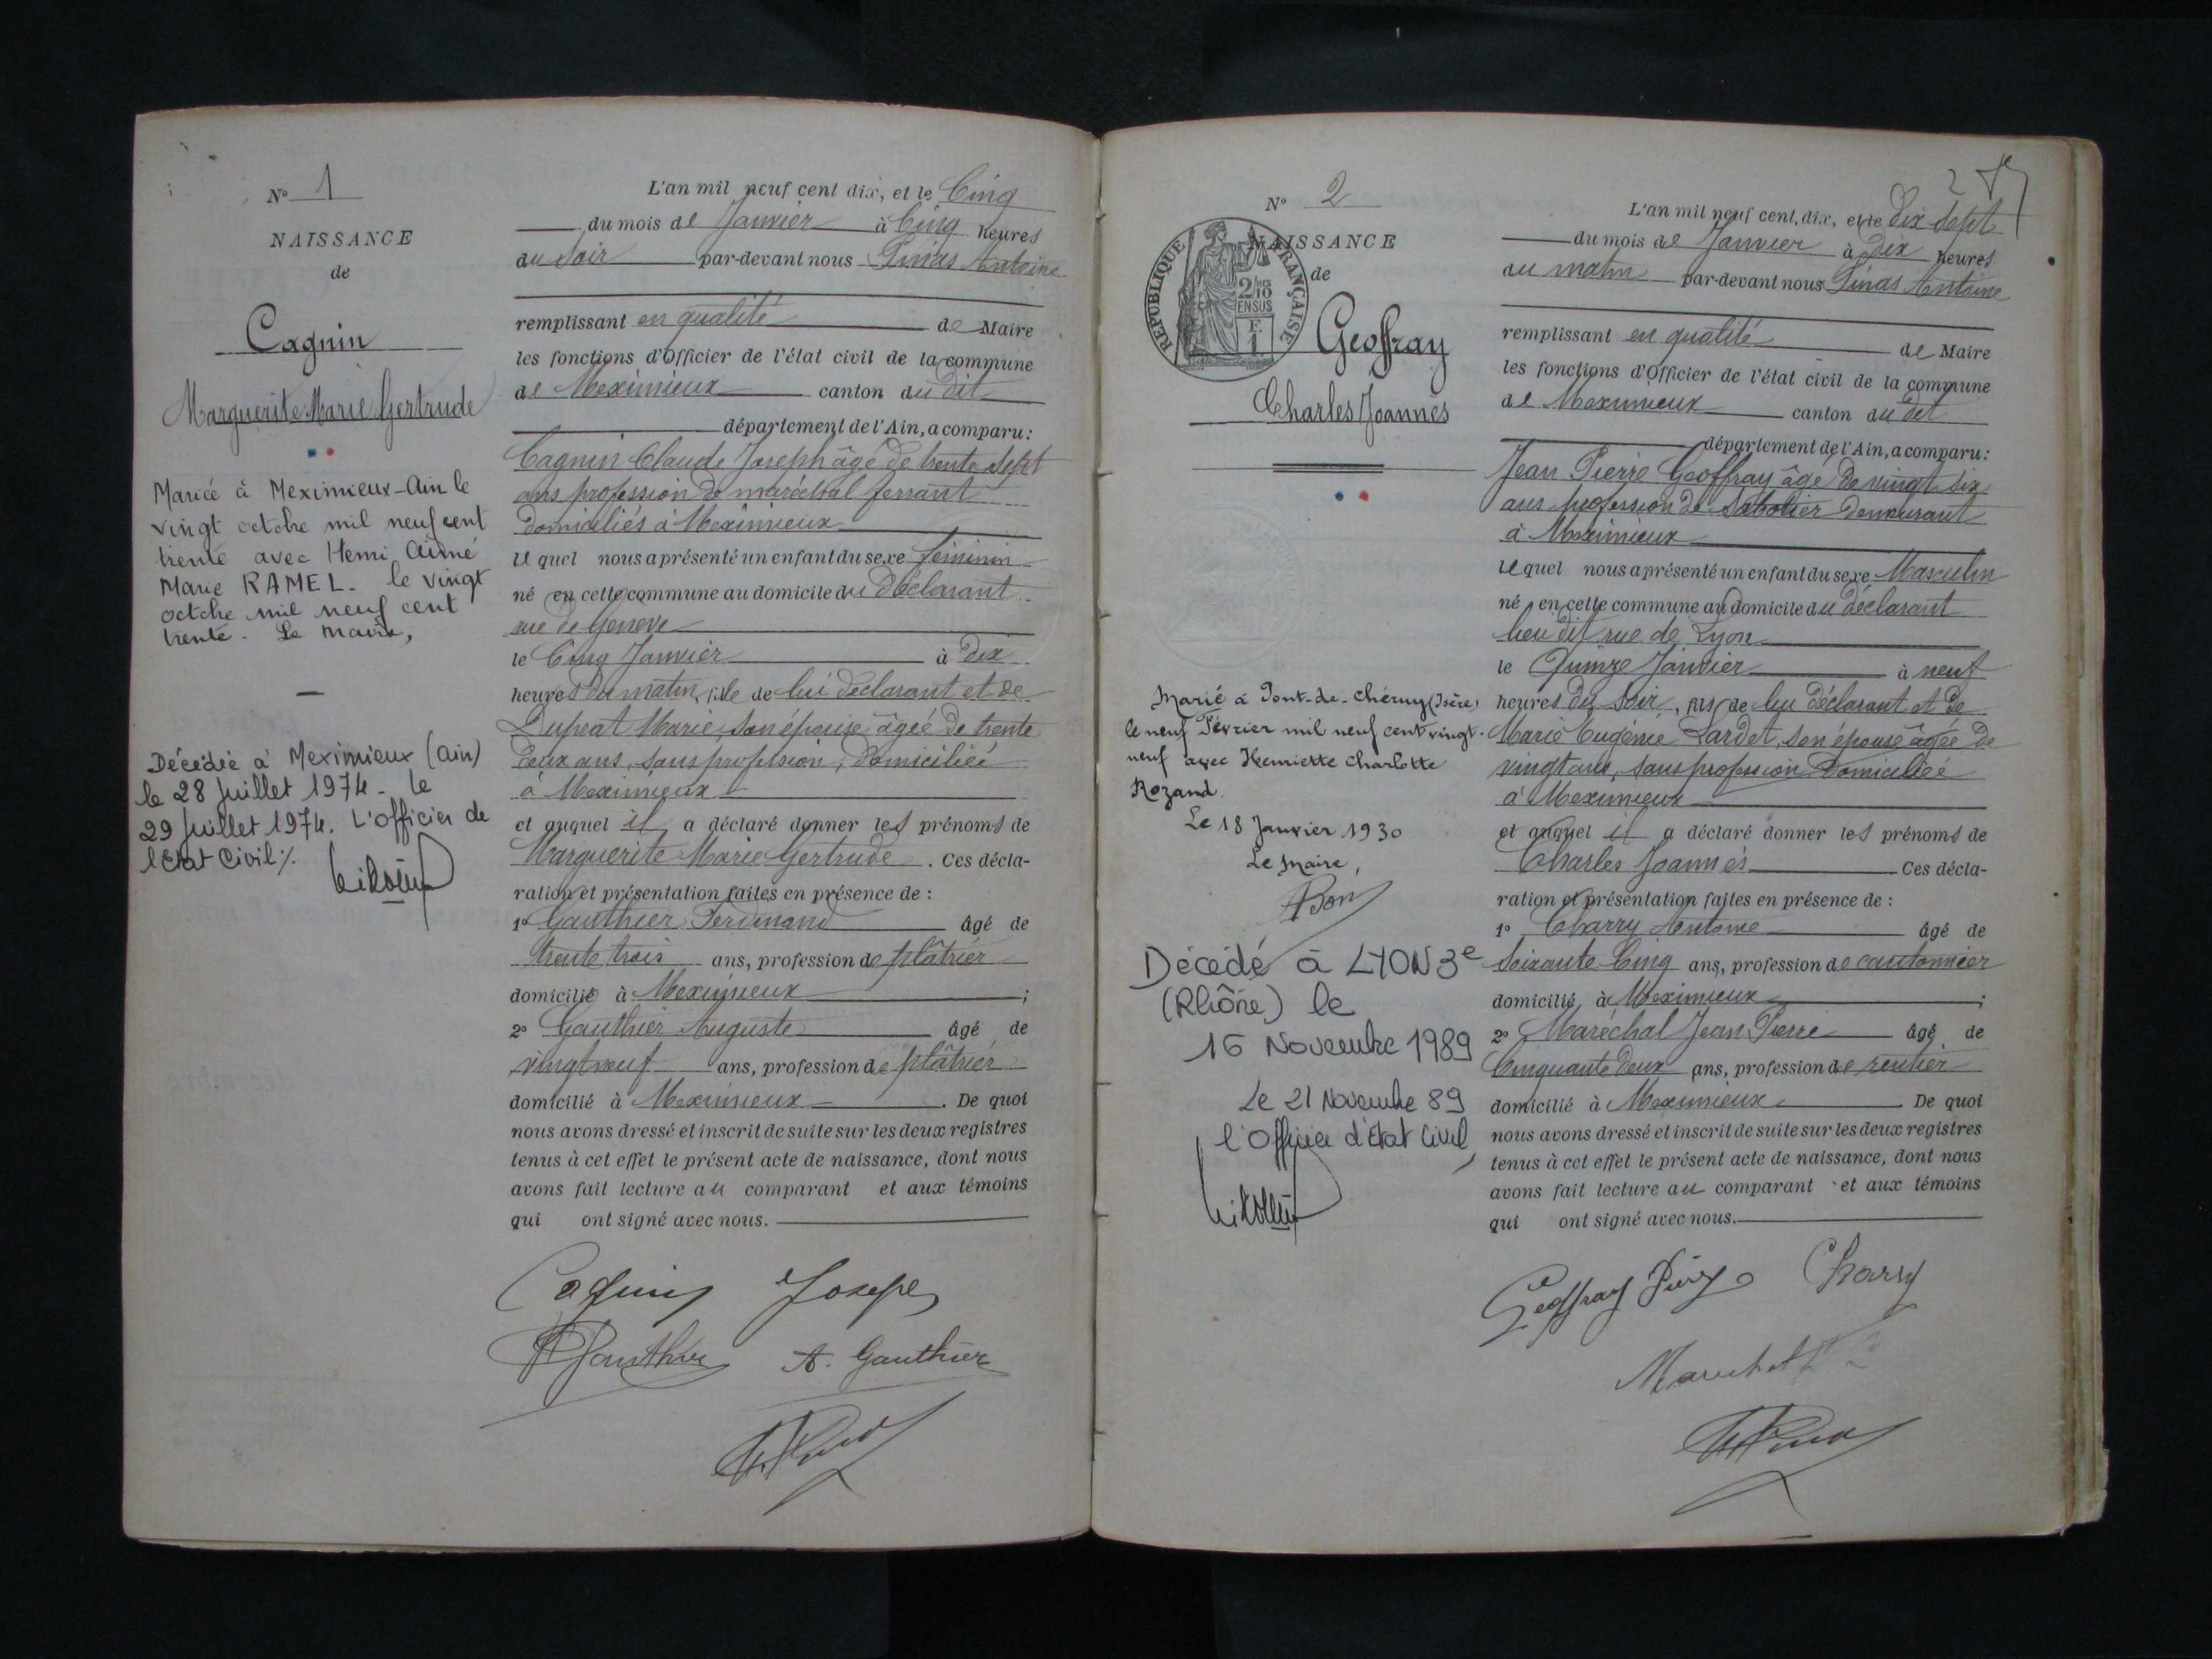 N° 1
NAISSANCE
de
Cagnin
Marguerite Marie Gertrude
Mariée à Meximieux-Ain le
vingt octobre mil neuf cent
trente avec Henri Aimé
Marie RAMEL. le vingt
octobre mil neuf cent
trente. Le maire,
Décédée à Meximieux (Ain)
le 28 juillet 1974. le
29 juillet 1974. L'officier de
l'Etat Civil %.
L'an mil neuf cent dix, et le Cinq
du mois de Janvier à Cinq heures
du soir par-devant nous Pinas Antoine
remplissant en qualité de Maire
les fonctions d'Officier de l'état civil de la commune
de Meximieux canton du dit
département de l'Ain, a comparu:
Cagnin Claude Joseph âgé de trente sept
ans profession de maréchal ferrant
domiciliés à Meximieux
lequel nous a présenté un enfant du sexe féminin
né en cette commune au domicile du déclarant
rue de Genève
le Cinq Janvier à dix
heures du matin, fille de lui déclarant et de
Duprat Marie, son épouse âgée de trente
deux ans, sans profession, domiciliée
à Meximieux
et auquel il a déclaré donner les prénoms de
Marguerite Marie Gertrude. Ces décla-
ration et présentation faites en présence de :
1° Gauthier Ferdinand âgé de
trente trois ans, profession de plâtrier
domicilié à Meximieux ;
2° Gauthier Auguste âgé de
vingt neuf ans, profession de plâtrier
domicilié à Meximieux. De quoi
nous avons dressé et inscrit de suite sur les deux registres
tenus à cet effet le présent acte de naissance, dont nous
avons fait lecture au comparant et aux témoins
qui ont signé avec nous.
Cagnin Joseph
F Gauthier A. Gauthier
N° 2
NAISSANCE
de
RÉPUBLIQUE FRANÇAISE
2/10 EN SUS
F. 1
Geoffray
Charles Joannès
Marié à Pont-de-Chéruy (Isère)
le neuf Février mil neuf cent vingt-
neuf avec Henriette Charlotte
Rozand.
Le 18 Janvier 1930
Le Maire,
Bon
Décédé à LYON 3e
(Rhône) le
16 Novembre 1989
Le 21 Novembre 89
l'Officier d'Etat Civil
2
L'an mil neuf cent, dix, et le dix sept
du mois de Janvier à dix heures
du matin par-devant nous Pinas Antoine
remplissant en qualité de Maire
les fonctions d'Officier de l'état civil de la commune
de Meximieux canton du dit
département de l'Ain, a comparu:
Jean Pierre Geoffray âgé de vingt six
ans profession de sabotier demeurant
à Meximieux
lequel nous a présenté un enfant du sexe Masculin
né en cette commune au domicile du déclarant
lieu dit rue de Lyon
le Quinze Janvier à neuf
heures du soir, fils de lui déclarant et de
Marie Eugénie Lardet, son épouse âgée de
vingt ans, sans profession domiciliée
à Meximieux
et auquel il a déclaré donner les prénoms de
Charles Joannès Ces décla-
ration et présentation faites en présence de :
1° Charry Antoine âgé de
Soixante Cinq ans, profession de cantonnier
domicilié à Meximieux ;
2° Maréchal Jean Pierre âgé de
Cinquante deux ans, profession de rentier
domicilié à Meximieux. De quoi
nous avons dressé et inscrit de suite sur les deux registres
tenus à cet effet le présent acte de naissance, dont nous
avons fait lecture au comparant et aux témoins
qui ont signé avec nous.
Geoffray Pierre Charry